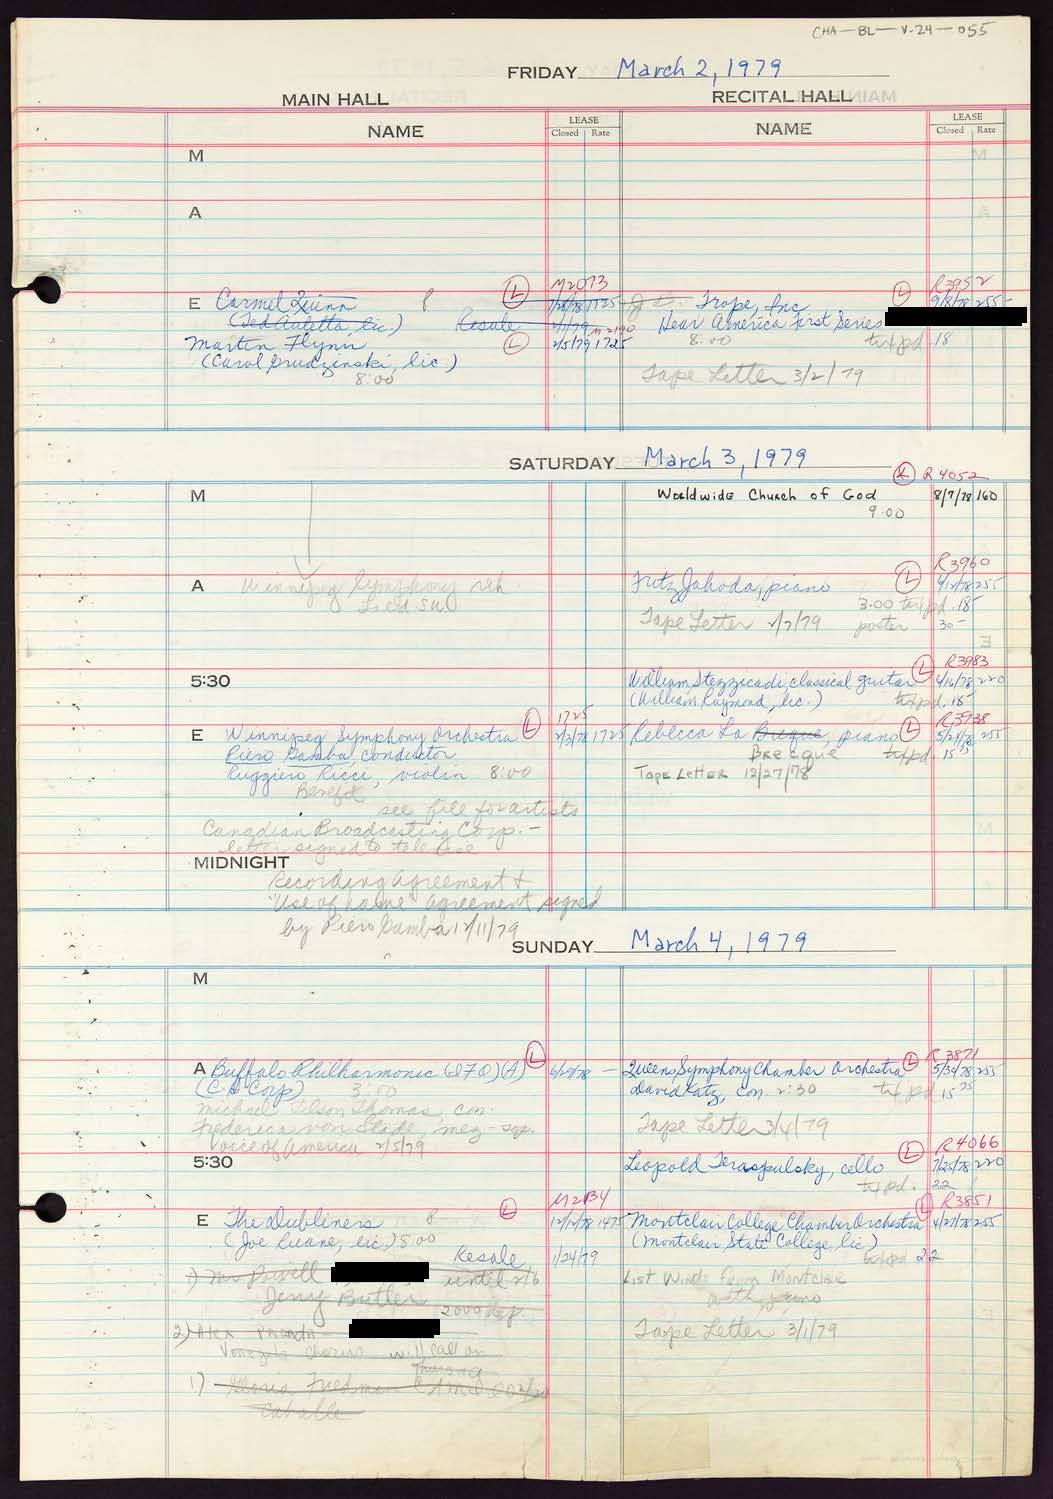 CHA-BL-V.24-055
FRIDAY March 2, 1979
MAIN HALL
RECITAL HALL
NAME
LEASE
Closed Rate
NAME
LEASE
Closed Rate
M
A
E Carmel Quinn 8 L M2073 1725
(Ted Auletta, lic) Resale M2190
Martin Flynn L 2/5/79 1725
(Carol Grudzinski, lic.)
8:00
Trope, Inc L R3952 9/8/78 255-
Hear America First Series
8:00 tx pd. 18
Tape Letter 3/2/79
SATURDAY March 3, 1979
M
L R4052
Worldwide Church of God 8/7/78 160
9:00
A Winnipeg Symphony reh.
Fritz Jahoda, piano L R3960 255
3:00 tx pd. 18-
Tape Letter 2/7/79 poster 30-
5:30
William Stezzicadi, classical guitar L R3983 4/16/78 220
(William Raymond, lic.) tx pd. 15-
E Winnipeg Symphony Orchestra L 1725 2/2/78 1725
Piero Gamba, conductor
Ruggiero Ricci, violin 8:00
Benefit
see file for artists
Canadian Broadcasting Corp. -
letter signed to televise
Rebecca La Breque, piano L R3938 255
Brecque tx pd. 15
Tape Letter 12/27/78
MIDNIGHT
Recording Agreement &
"Use of name" agreement signed
by Piero Gamba 12/11/79
SUNDAY March 4, 1979
M
A Buffalo Philharmonic (A) L
(CH Corp) 3:00
Michael Tilson Thomas, con.
Frederica von Stade, mez-sop.
Voice of America 2/5/79
Queens Symphony Chamber Orchestra L R3871 5/30/78 255
David Katz, con. 2:30 tx pd. 15
Tape Letter 3/4/79
5:30
Leopold Teraspulsky, cello L R4066 7/25/78 220
tx pd. 22
E The Dubliners 8 L M2134 12/14/78 1475
(Joe Ruane, lic.) 8:00
Resale 1/24/79
Powell until 2/6
Jerry Butler
2000 dep.
2) Alex
chorus will call on
1) Gloria Friedman
Caballe
Montclair College Chamber Orchestra L R3851 4/27/78 255
(Montclair State College, lic) tx pd 22
List Winds from Montclair
with piano
Tape Letter 3/1/79